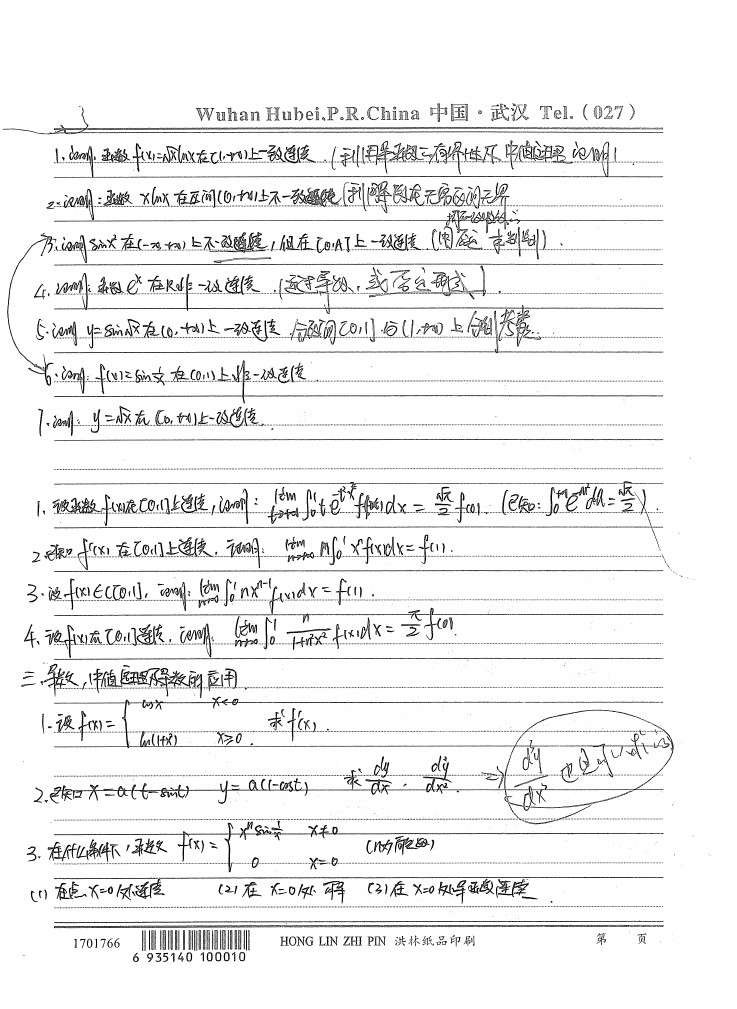 Wuhan Hubei,P.R.China 中国·武汉 Tel.(027)
1.证明:函数 f(x)=√x lnx 在[1,+∞)上一致连续 (利用导函数有界性及中值定理证明)
2.证明:函数 xlnx 在区间(0,+∞)上不一致连续(利用导函数在无穷区间无界
3.证明 sinx² 在(-∞,+∞)上不一致连续,但在[0,A]上一致连续
4.证明:函数 eˣ 在R上非一致连续 (通过导数,或否定形式)
5.证明 y=sin√x 在(0,+∞)上一致连续 分区间[0,1]与(1,+∞)上分别考虑
6.证明:f(x)=sin 1/x 在(0,1)上非一致连续
7.证明:y=√x 在[0,+∞)上一致连续.
1.设函数f(x)在[0,1]上连续,证明: lim ∫₀¹ t e^(-t²x²) f(x)dx = √π/2 f(0). (已知:∫₀^(+∞) e^(-u²)du=√π/2)
2.已知f(x)在[0,1]上连续.证明: lim n→∞ n∫₀¹ xⁿf(x)dx=f(1).
3.设f(x)∈C[0,1],证明: lim n→∞ ∫₀¹ nxⁿ⁻¹f(x)dx=f(1).
4.设f(x)在[0,1]连续,证明 lim n→∞ ∫₀¹ n/(1+n²x²) f(x)dx = π/2 f(0)
三.导数,中值定理及导数的应用
1.设 f(x)= { cosx x<0
ln(1+x²) x≥0 . 求f'(x).
2.已知 x=a(t-sint) y=a(1-cost) 求 dy/dx , d²y/dx². ⇒ d²y/dx²
3.在什么条件下,函数 f(x)= { xⁿsin 1/x x≠0
0 x=0
(1)在点x=0处连续 (2)在x=0处可导 (3)在x=0处导函数连续
1701766
6 935140 100010
HONG LIN ZHI PIN 洪林纸品印刷
第 页